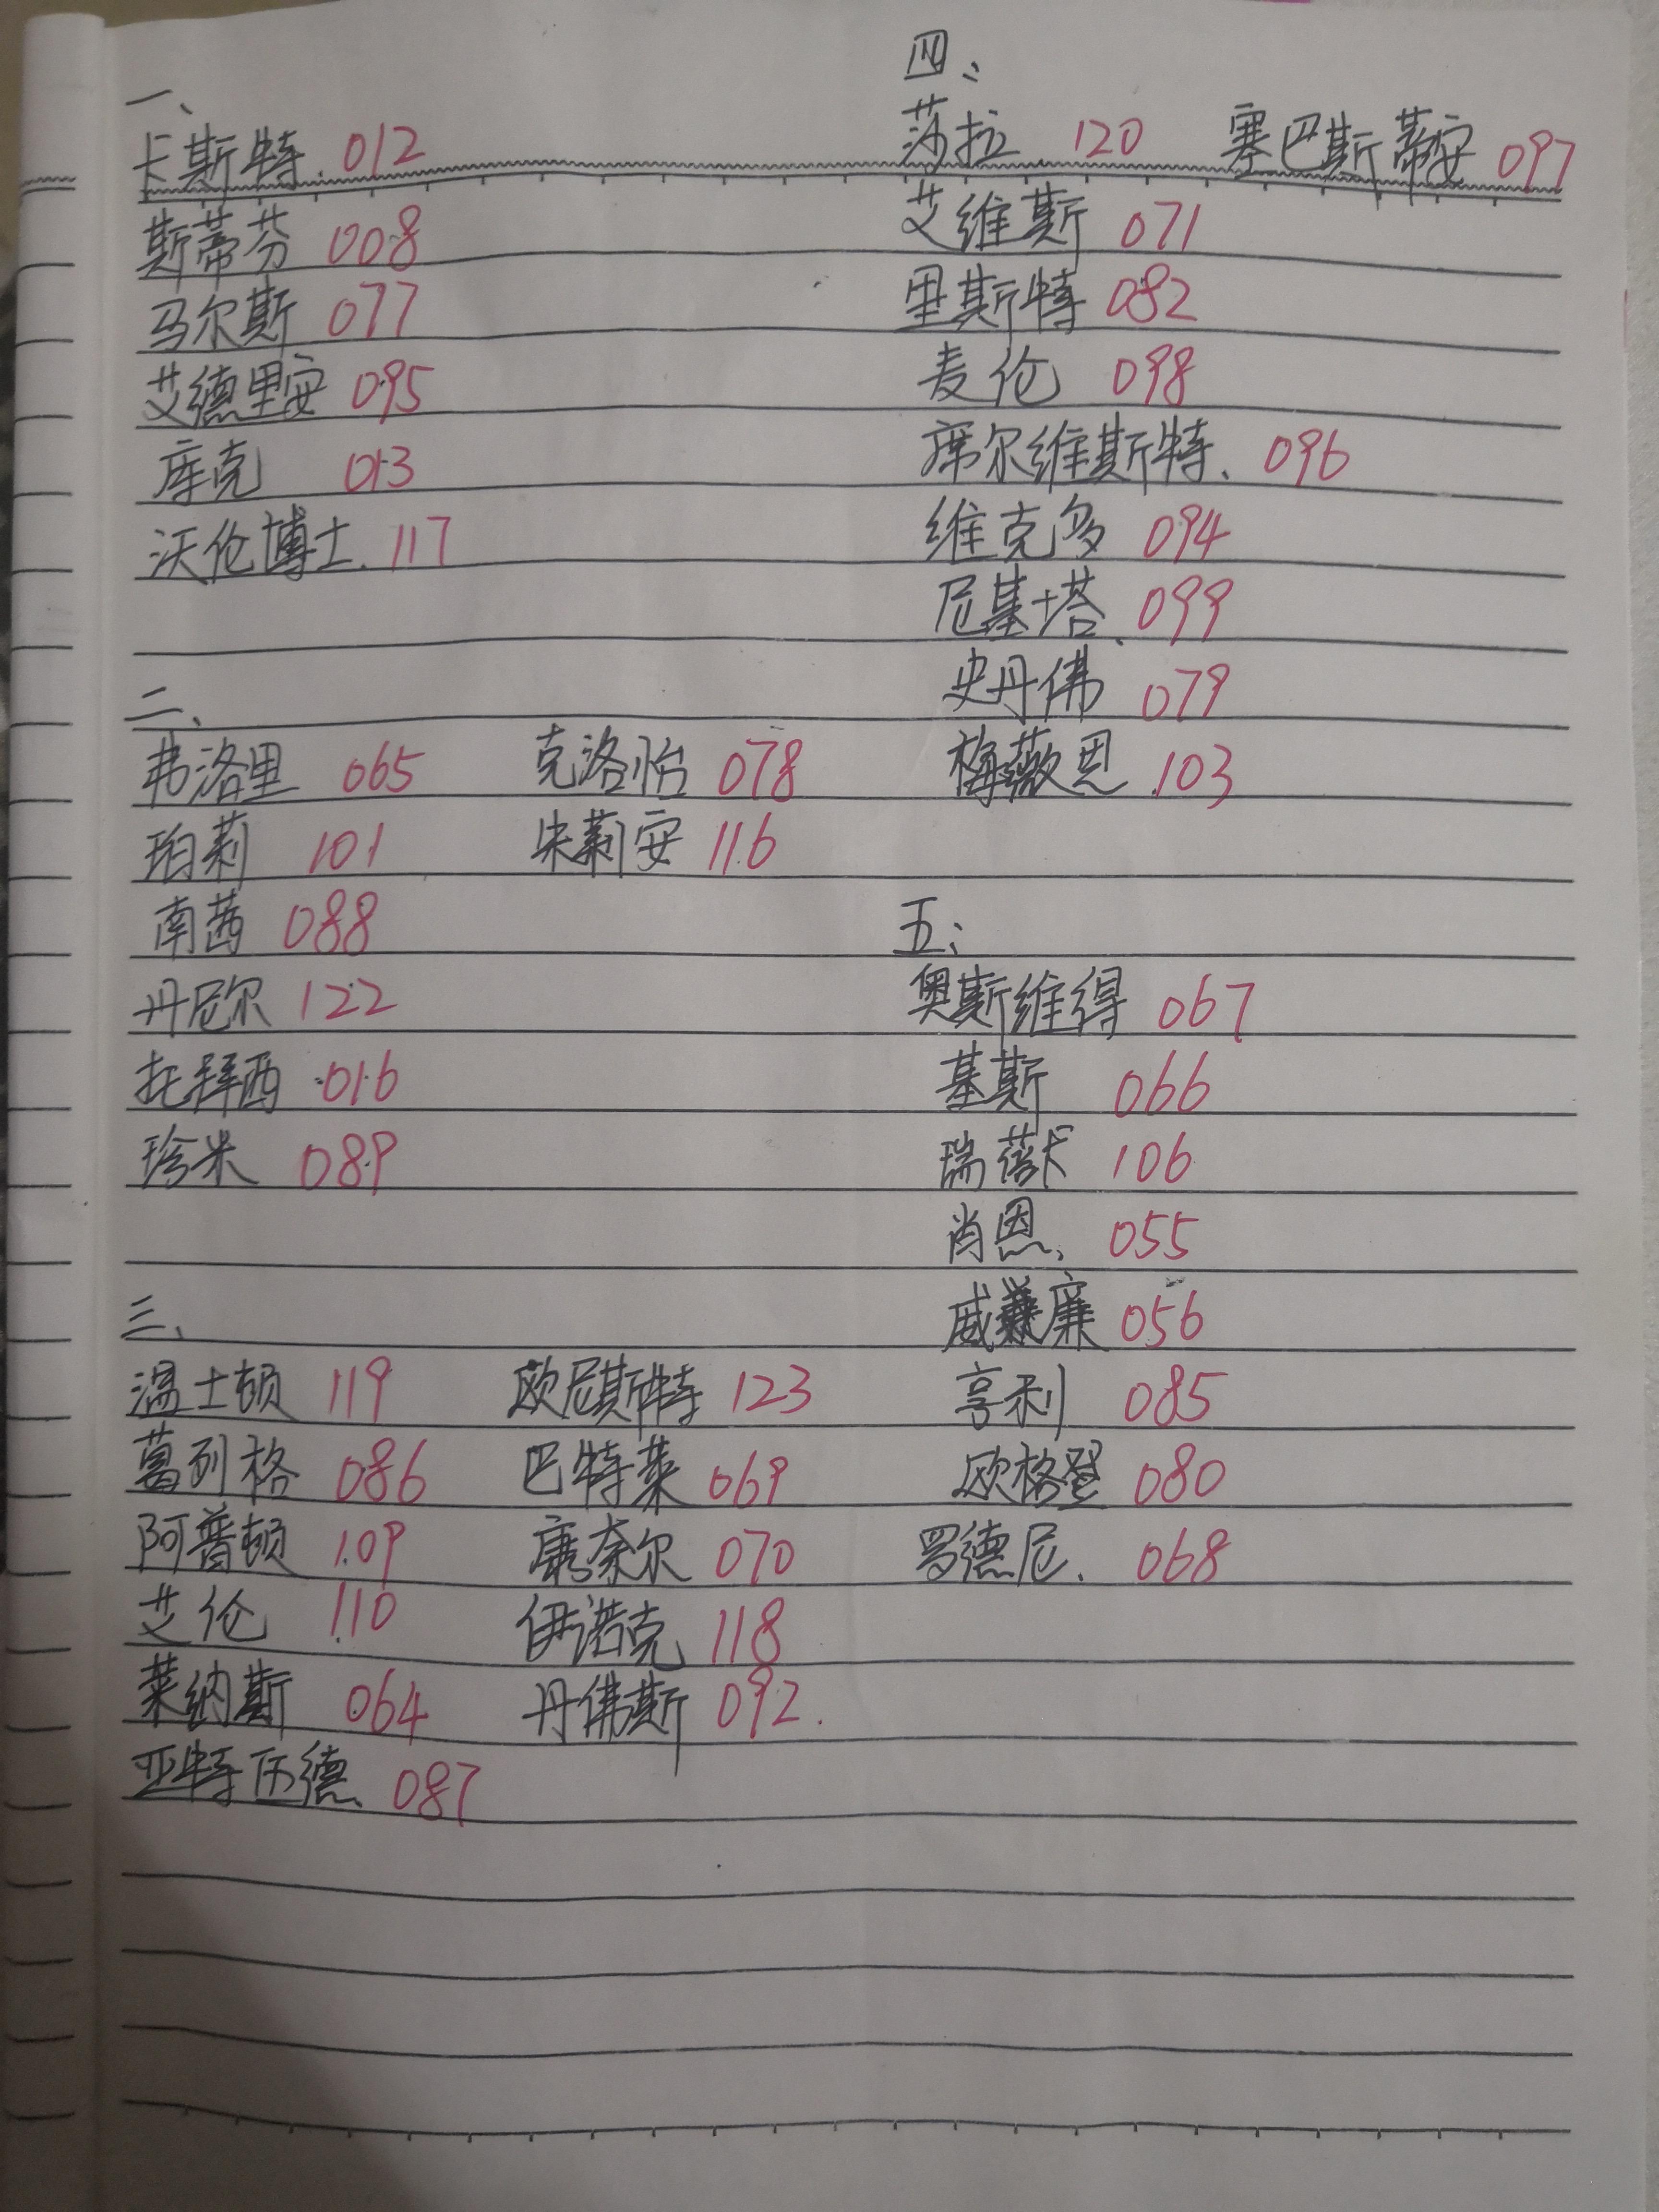 一、
卡斯特 012
斯蒂芬 008
马尔斯 077
艾德里安 095
库克 013
沃伦博士 117
二、
弗洛里 065 克洛怡 078
珀莉 101 朱莉安 116
南茜 088
丹尼尔 122
托拜西 016
珍米 089
三、
温士顿 119 欧尼斯特 123
葛列格 086 巴特莱 069
阿普顿 109 唐奈尔 070
艾伦 110 伊诺克 118
莱纳斯 064 丹佛斯 092.
亚特伍德 087
四、
莎拉 120 塞巴斯蒂安 097
艾维斯 071
里斯特 082
麦伦 098
席尔维斯特、096
维克多 094
尼基塔、099
史丹佛 079
梅薇恩 103
五、
奥斯维得 067
基斯 066
瑞 106
肖恩、055
威廉 056
亨利 085
欧格登 080
罗德尼、068